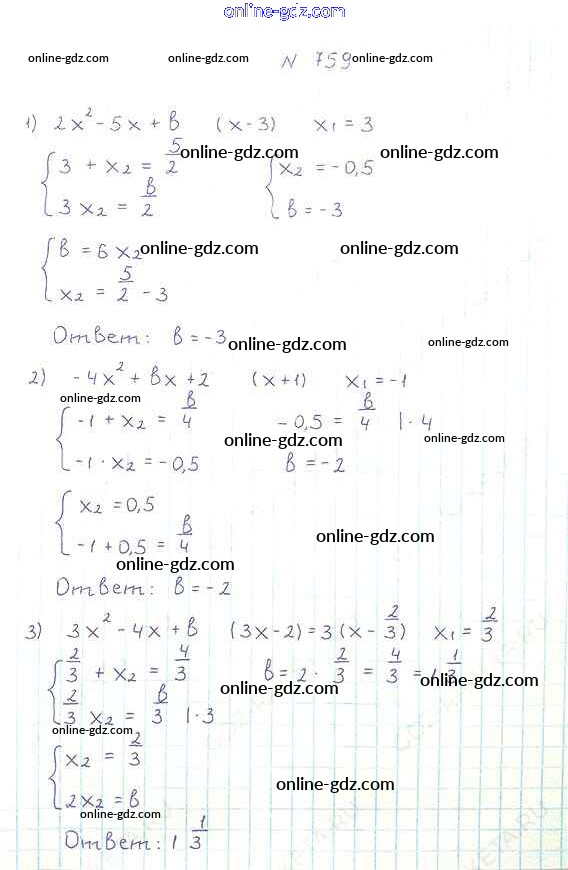 online-gdz.com
online-gdz.com online-gdz.com N 759 online-gdz.com
1) 2x² - 5x + b (x - 3) x₁ = 3
{ 3 + x₂ = 5/2 online-gdz.com { x₂ = -0,5 online-gdz.com
3x₂ = b/2 b = -3
{ b = 6x₂ online-gdz.com online-gdz.com
x₂ = 5/2 - 3
Ответ: b = -3 online-gdz.com online-gdz.com
2) -4x² + bx + 2 (x + 1) x₁ = -1
{ -1 + x₂ = b/4 -0,5 = b/4 | · 4
online-gdz.com online-gdz.com
-1 · x₂ = -0,5 b = -2
{ x₂ = 0,5
-1 + 0,5 = b/4 online-gdz.com
online-gdz.com
Ответ: b = -2
3) 3x² - 4x + b (3x - 2) = 3(x - 2/3) x₁ = 2/3
online-gdz.com
{ 2/3 + x₂ = 4/3 b = 2 · 2/3 = 4/3 = 1 1/3
online-gdz.com online-gdz.com
2/3 x₂ = b/3 | · 3
online-gdz.com
{ x₂ = 2/3
online-gdz.com
2x₂ = b
online-gdz.com
Ответ: 1 1/3